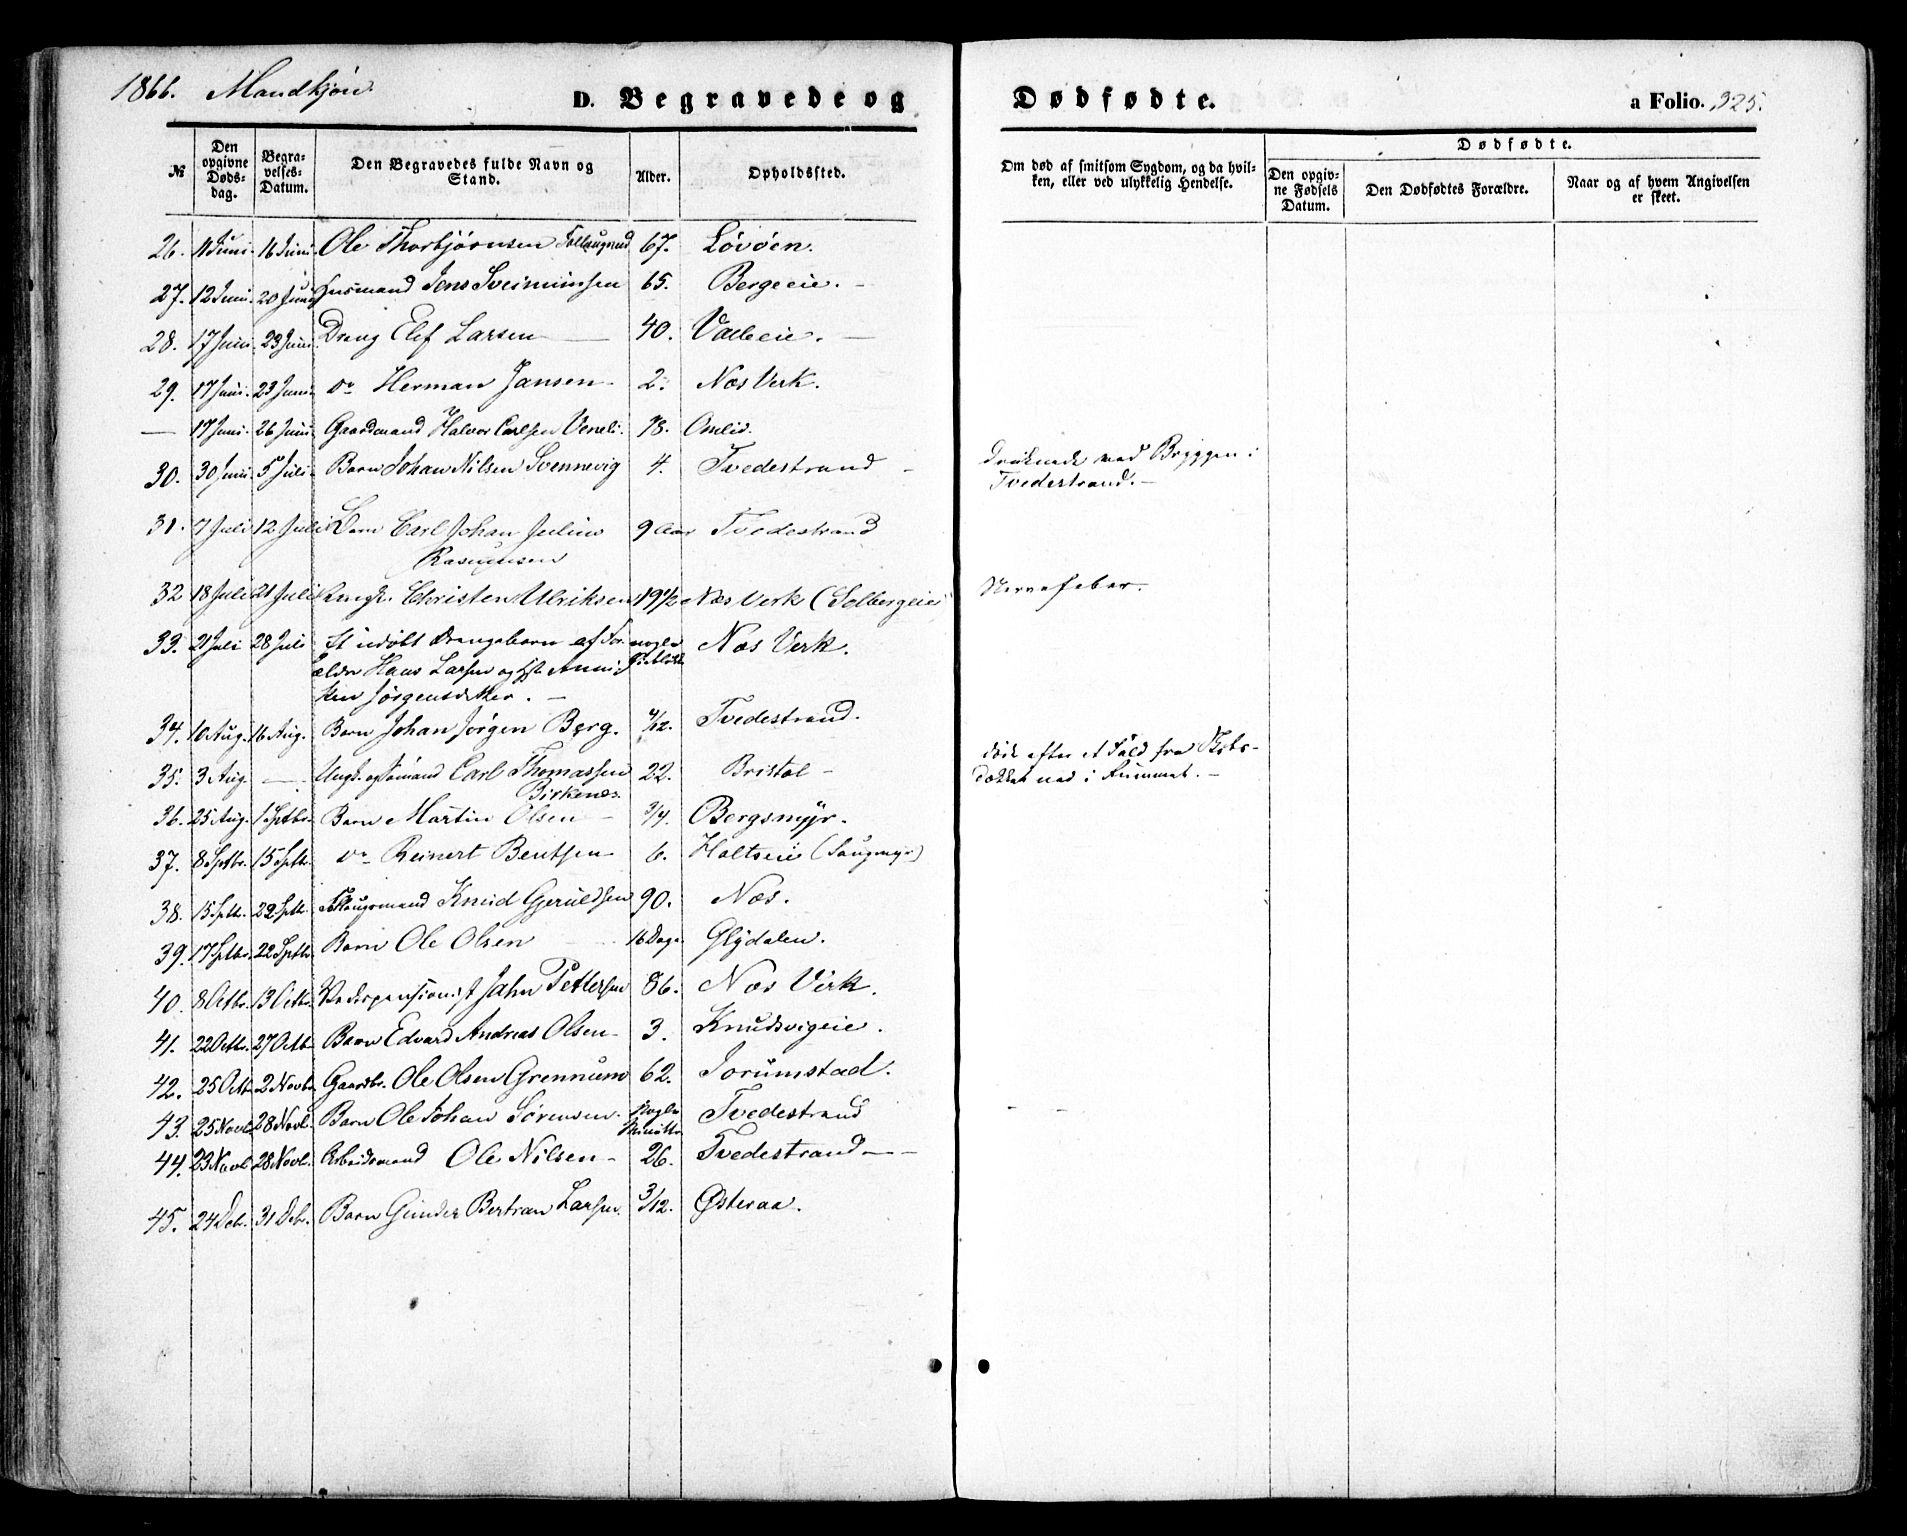 1866. Mandkjøn.
D. Begravede og Dødfødte. a Folio. 325.
№ Den opgivne Døds-dag. Begra-velses-Datum. Den Begravedes fulde Navn og Stand. Alder. Opholdssted. Om død af smitsom Sygdom, og da hvil-ken, eller ved ulykkelig Hendelse. Dødfødte. Den opgiv-ne Fødsels Datum. Den Dødfødtes Forældre. Naar og af hvem Angivelsen er skeet.
26. 11 Juni. 16 Juni. Ole Thorbjørnsen 67. Løvøen.
27. 12 Juni. 20 Juni Husmand Jens Sveinunsen 65. Bergeeie. -
28. 17 Juni. 23 Juni. Dreng Elef Larsen 40. Valleeie. -
29. 17 Juni. 23 Juni. do Herman Jansen 2. Næs Verk.
— 17 Juni. 26 Juni. Gaardmand Halvor Carlsen Veneli. 78. Omlid.
30. 30 Juni. 5 Juli Barn Johan Nilsen Svennevig 4. Tvedestrand - Druknede ved Bryggen i
Tvedestrand. -
31. 7 Juli 12 Juli Barn Carl Johan Julius 9 Aar Tvedestrand
Rasmusen
32 18 Juli 21 Juli Ungk. Christen Ulriksen 19 1/2 Næs Verk (Solbergeie) Nervefeber.
33. 21 Juli 28 Juli Et udøbt Drengebarn af For- nogle Næs Verk.
ældre Hans Larsen og Anni-
ken Jørgensdatter. -
34. 10 Aug. 16 Aug. Barn Johan Jørgen Berg. 4/12. Tvedestrand.
35. 3 Aug. — Ungk. og Sømand Carl Thomassen 22. Bristol - Død efter et Fald fra
Dækket ned i Rummet. -
Birkenæs.
36. 25 Aug. 1 Septbr. Barn Martin Olsen - 3/4. Bergsmyr.
37. 8 Septbr. 15 Septbr. do Reinert Bentsen 6. Holtseie (Saugmyr)
38. 15 Septbr. 22 Septbr. Knud Gjeruldsen 90. Næs.
39. 17 Septbr. 22 Septbr. Barn Ole Olsen 16 Dage Glydalen.
40. 8 Octbr. 13 Octbr. Jahn Pettersen 86. Næs Verk.
41. 22 Octbr. 27 Octbr. Barn Edvard Andreas Olsen 3. Knudsvigeie.
42. 25 Octbr. 2 Novbr. Gaardbr. Ole Olsen Grennum 62. Jorumstad.
43. 25 Novbr. 28 Novbr. Barn Ole Johan Sørensen. Nogle Minutter Tvedestrand
44. 23 Novbr. 28 Novbr. Arbeidsmand Ole Nilsen 26. Tvedestrand
45. 24 Debr. 31 Debr. Barn Gunder Bertran Larsen. 3/12. Østeraa.